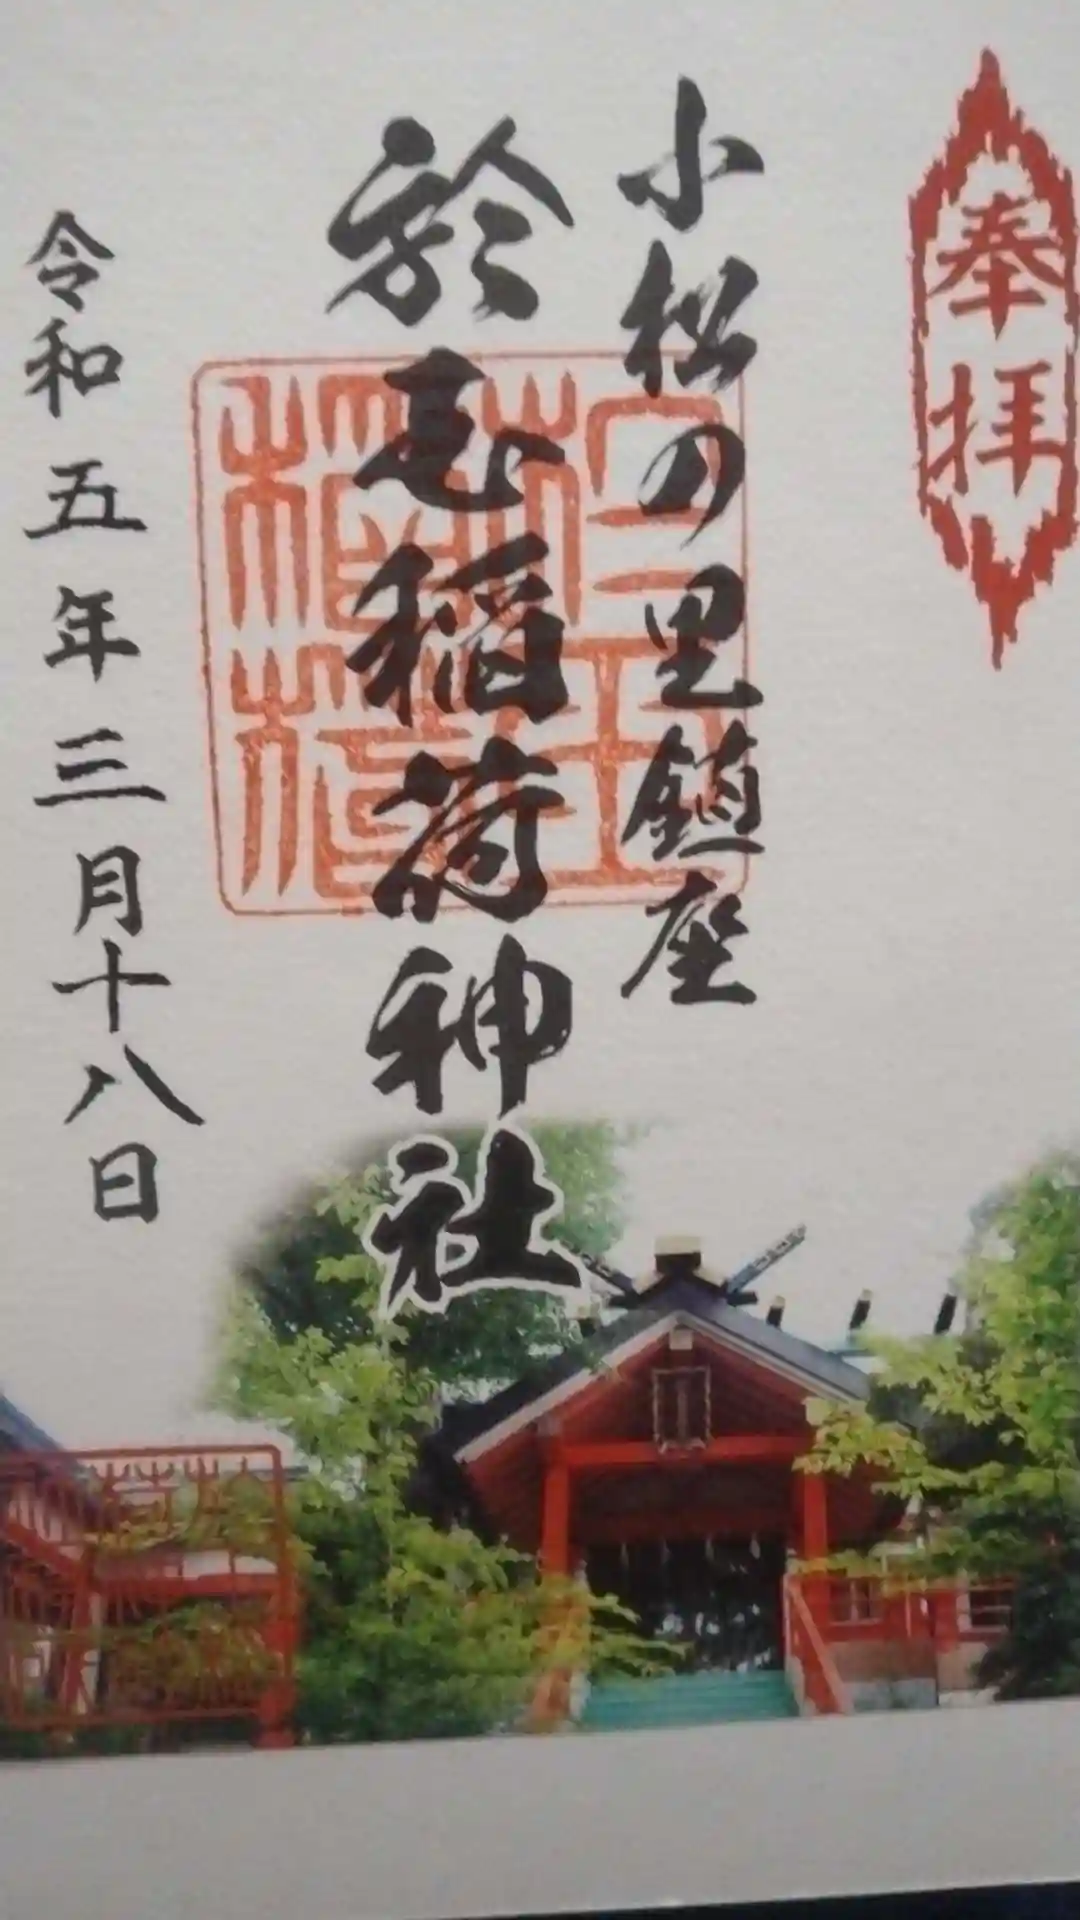 奉拝
小松の里鎮座
於玉稲荷神社
令和五年三月十八日